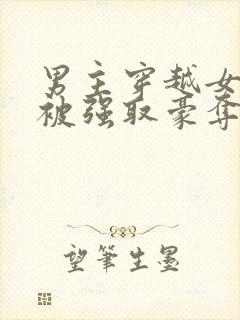 男主穿越女
被强取豪夺
望筆生墨